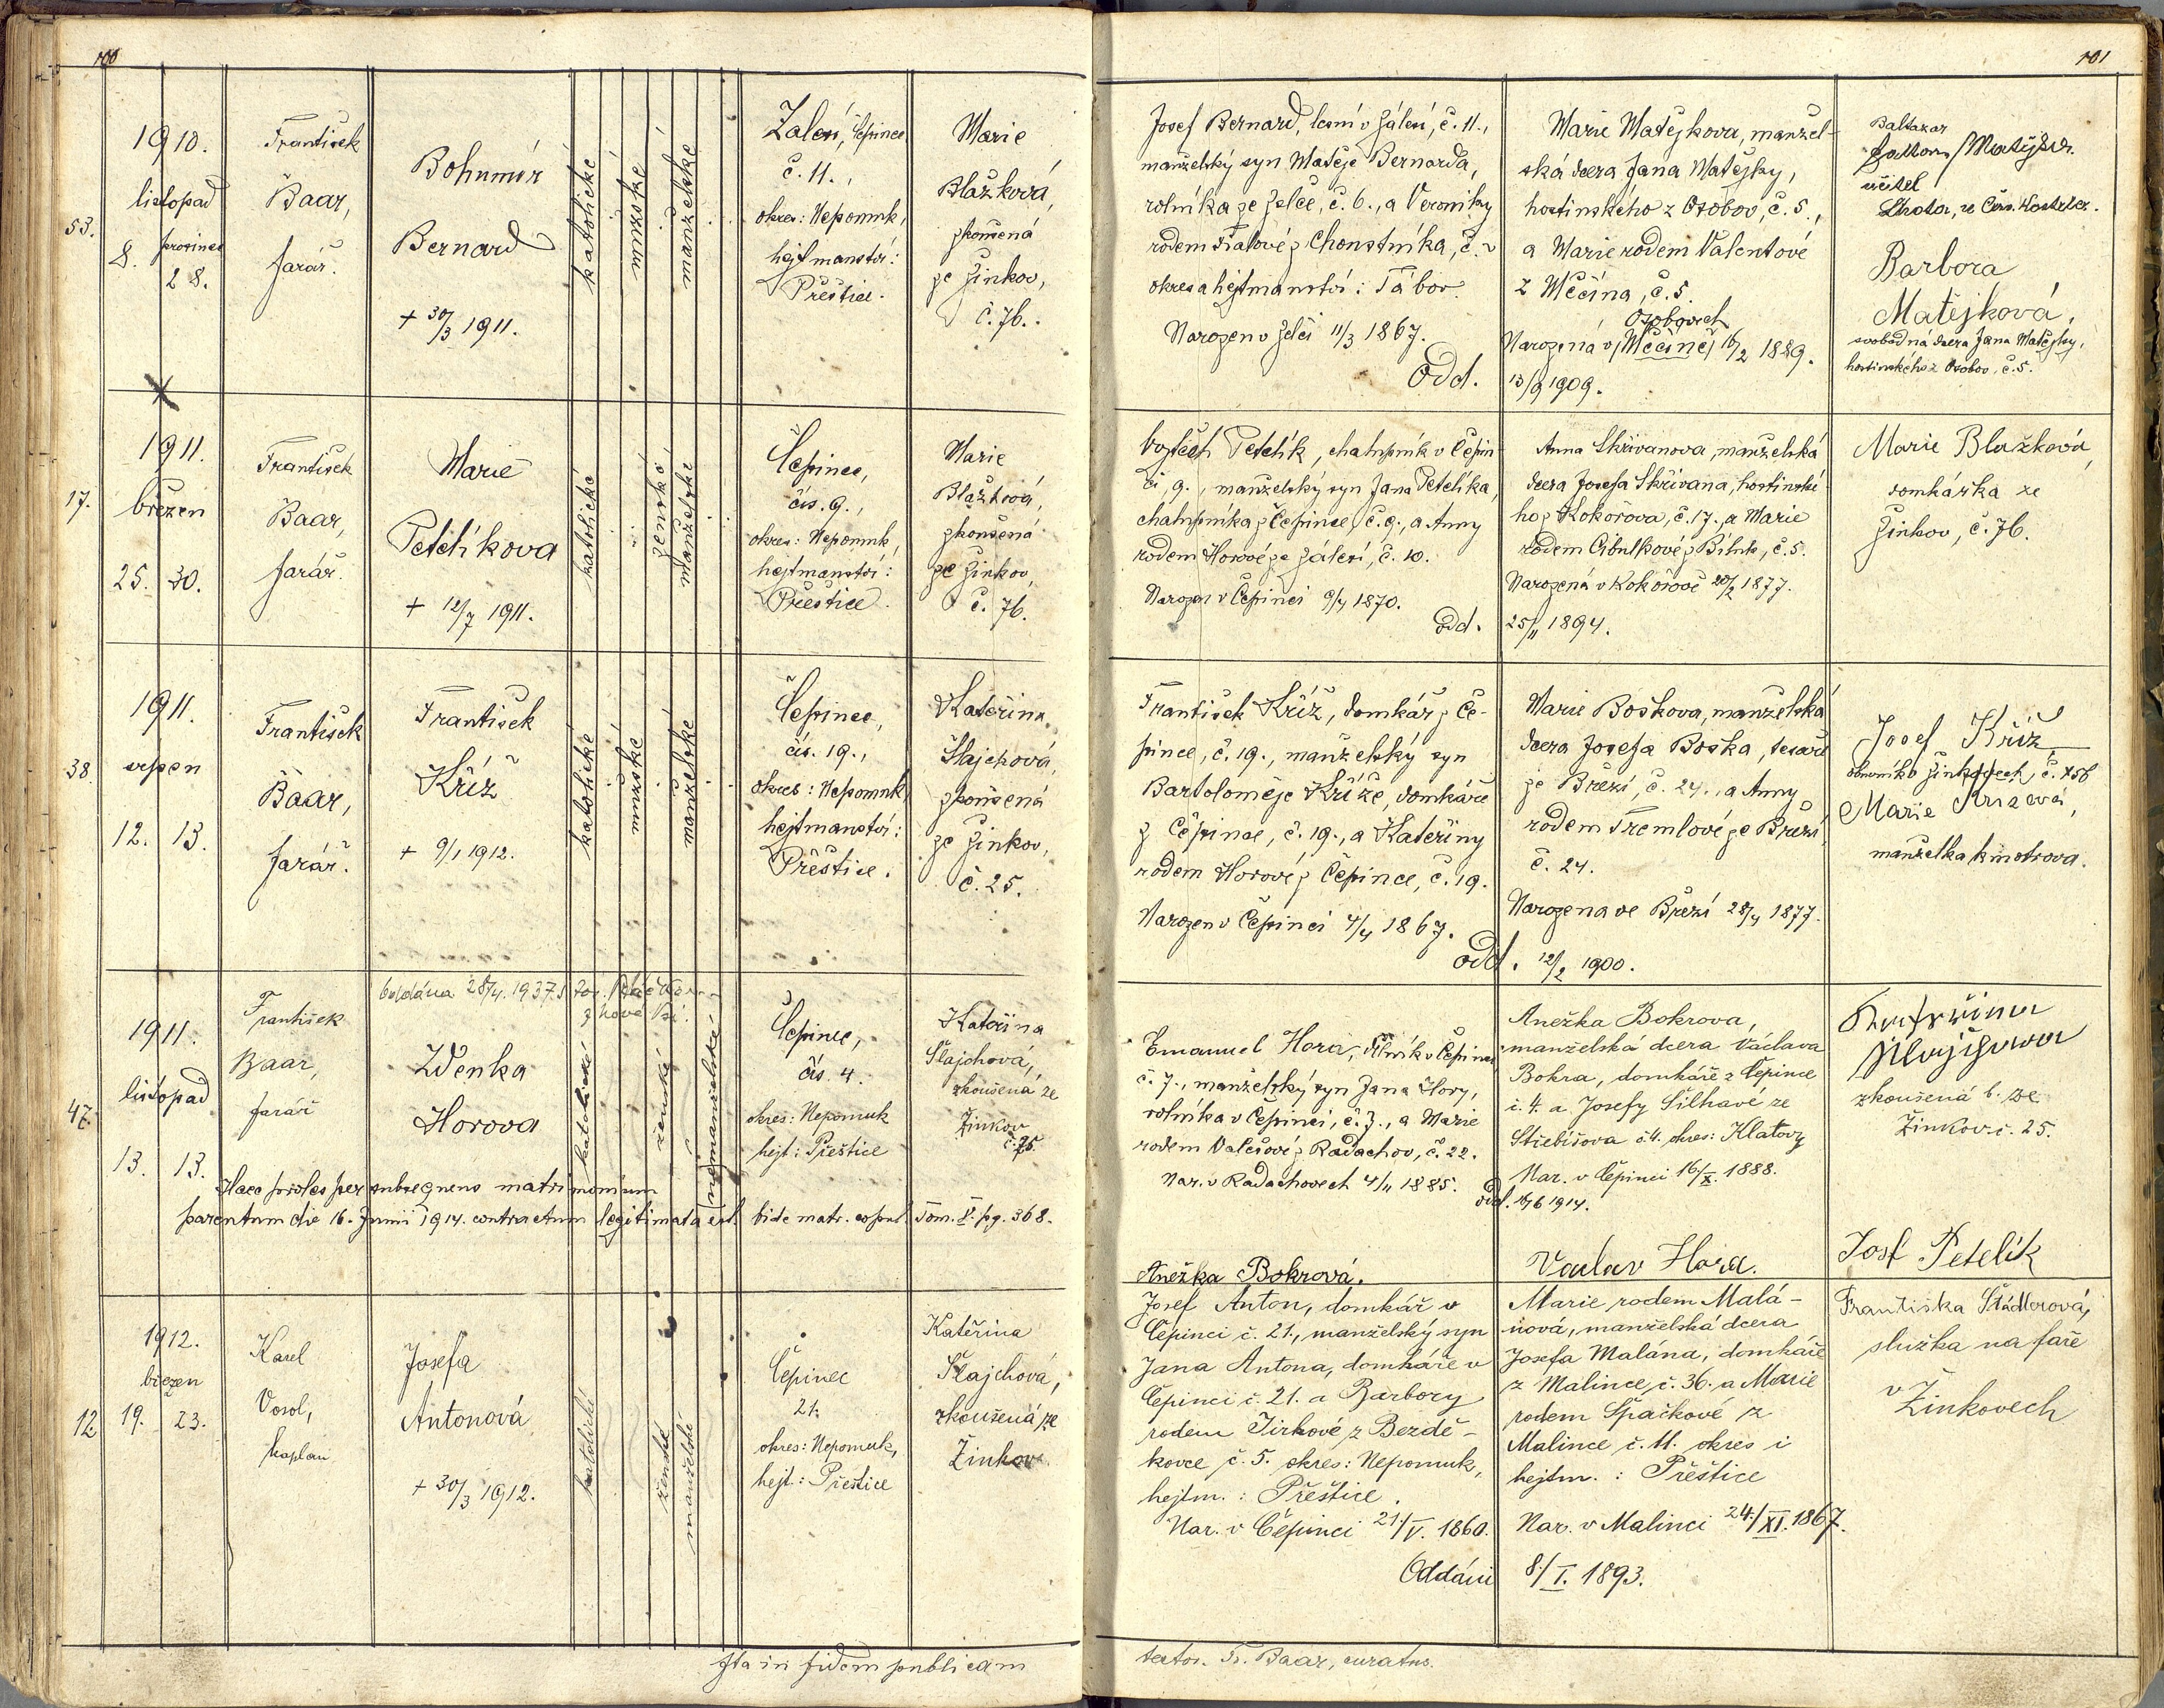 100
53.
1910.
listopad
8.
prosinec
28.
František
Baar,
farář.
Bohumír
Bernard
+ 30/3 1911.
katolické
mužské
manželské
Čepinec
č. 11.,
okres: Nepomuk,
hejtmanství:
Přeštice.
Marie
Blažková,
zkoušená
ze Žinkov,
č. 76.
17.
1911.
březen
25. 30.
František
Baar,
farář.
Marie
Petelíkova
+ 12/7 1911.
katolické
ženské
manželské
Čepinec,
čís. 9.,
okres: Nepomuk,
hejtmanství:
Přeštice.
Marie
Blažková,
zkoušená
ze Žinkov,
č. 76.
38.
1911.
srpen
12. 13.
František
Baar,
farář.
František
Kříž
+ 9/1 1912.
katolické
mužské
manželské
Čepinec,
čís. 19.,
okres: Nepomuk
hejtmanství:
Přeštice.
Kateřina
Šlajchová,
zkoušená
ze Žinkov,
č. 25.
47.
1911.
listopad
13. 13.
František
Baar,
farář
28/4. 1937.
Zdenka
Horova
katolické
ženské
nemanželské
Čepinec,
čís. 4.
okres: Nepomuk
hejt: Přeštice
Kateřina
Šlajchová,
zkoušená ze
Žinkov
č. 25.
Haec proles per subsequens matrimonium
parentum die 16. Junii 1914. contractum legitimata est. Vide matr. copul. Tom. V. pg. 368.
12
1912.
březen
19. 23.
Karel
Vosol,
kaplan
Josefa
Antonová
+ 30/3 1912.
katolické
ženské
manželské
Čepinec
21.
okres: Nepomuk,
hejt.: Přeštice
Kateřina
Šlajchová,
zkoušená ze
Žinkov.
Ita in fidem publicam
101
Josef Bernard, lesní v Zálesí, č. 11.,
manželský syn Matěje Bernarda,
rolníka ze Želče, č. 6., a Veroniky
rodem Fialové z Choustníka, č.
okres a hejtmanství: Tábor.
Narozen v Želči 11/3 1867.
Odd.
Marie Matějkova, manžel-
ská dcera Jana Matějky,
hostinského z Osobov, č. 5.,
a Marie rodem Valentové
z Měčína, č. 5.
Osobovech
Narozená v (Měčíně) 16/2 1889.
13/9 1909.
Baltazar
učitel
Lhota, ze Červ. Kostelce.
Barbora
Matějková,
svobodná dcera Jana Matějky,
hostinského z Osobov, č. 5.
Vojtěch Petelík, chalupník v Čepin-
ci, 9., manželský syn Jana Petelíka,
chalupníka z Čepince, č. 9., a Anny
rodem Horové ze Zálesí, č. 10.
Narozen v Čepinci 9/4 1870.
Odd.
Anna Skřivanova, manželská
dcera Josefa Skřivana, hostinské-
ho z Kokořova, č. 17., a Marie
rodem Cibulkové z Bíluk, č. 5.
Narozená v Kokořově 20/2 1877.
25/11 1894.
Marie Blažková,
domkářka ze
Žinkov, č. 76.
František Kříž, domkář z Če-
pince, č. 19., manželský syn
Bartoloměje Kříže, domkáře
z Čepince, č. 19., a Kateřiny
rodem Horové z Čepince, č. 19.
Narozen v Čepinci 4/4 1867.
Odd.
Marie Boškova, manželská
dcera Josefa Boška, tesaře
ze Březí, č. 24., a Anny
rodem Tremlové ze Březí,
č. 24.
Narozena ve Březí 28/4 1877.
12/2 1900.
Josef Kříž,
obuvník v Žinkovech, č. 156
Marie Křížová,
manželka kmotrova.
Emanuel Hora, dělník v Čepinci
č. 7., manželský syn Jana Hory,
rolníka v Čepinci, č. 7., a Marie
rodem Valešové z Radachov, č. 22.
Nar. v Radachovech 4/11 1885.
Odd. 16/6 1914.
Anežka Bokrova,
manželská dcera Václava
Bokra, domkáře z Čepince
č. 4. a Josefy Šilhavé ze
Střebišova č. 4. okres: Klatovy
Nar. v Čepinci 16./X. 1888.
Kateřina
Šlajchová
zkoušená b. ze
Žinkov č. 25.
Anežka Bokrová.
Vaclav Hora.
Josf Petelík
Josef Anton, domkář v
Čepinci č. 21., manželský syn
Jana Antona, domkáře v
Čepinci č. 21. a Barbory
rodem Jirkové z Bezdě-
kovce č. 5. okres: Nepomuk,
hejtm.: Přeštice.
Nar. v Čepinci 21./V. 1860.
Oddáni
Marie rodem Malá-
nová, manželská dcera
Josefa Malána, domkáře
z Malince, č. 36. a Marie
rodem Špačkové z
Malince č. 11. okres i
hejtm.: Přeštice
Nar. v Malinci 24./XI. 1867.
8/I. 1893.
Františka Štádlerová,
služka na faře
v
Žinkovech
testor. Fr. Baar, curatus.